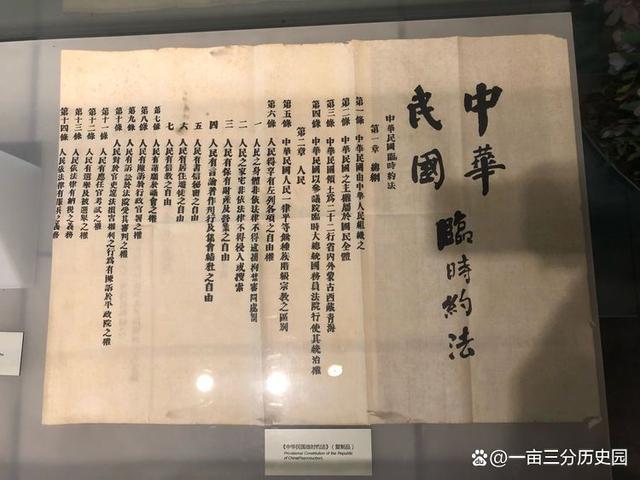 中華
民國
臨時約法
中華民國臨時約法
第一章 總綱
第一條 中華民國由中華人民組織之
第二條 中華民國之主權屬於國民全體
第三條 中華民國領土爲二十二行省內外蒙古西藏青海
第四條 中華民國以參議院臨時大總統國務員法院行使其統治權
第二章 人民
第五條 中華民國人民一律平等無種族階級宗教之區別
第六條 人民得享有左列各項之自由
一 人民之身體非依法律不得逮捕拘禁審問處罰
二 人民之家宅非依法律不得侵入或搜索
三 人民有保有財產及營業之自由
四 人民有言論著作刊行及集會結社之自由
五 人民有書信秘密之自由
六 人民有居住遷徙之自由
七 人民有信教之自由
第七條 人民有請願於議會之權
第八條 人民有陳訴於行政官署之權
第九條 人民有訴訟於法院受其審判之權
第十條 人民對於官吏違法損害權利之行爲有陳訴於平政院之權
第十一條 人民有應任官考試之權
第十二條 人民有選舉及被選舉之權
第十三條 人民依法律有納稅之義務
第十四條 人民依法律有服兵之義務
《中华民国临时约法》（复制品）
Provisional Constitution of the Republic
of China(Reproduction)
一亩三分历史园